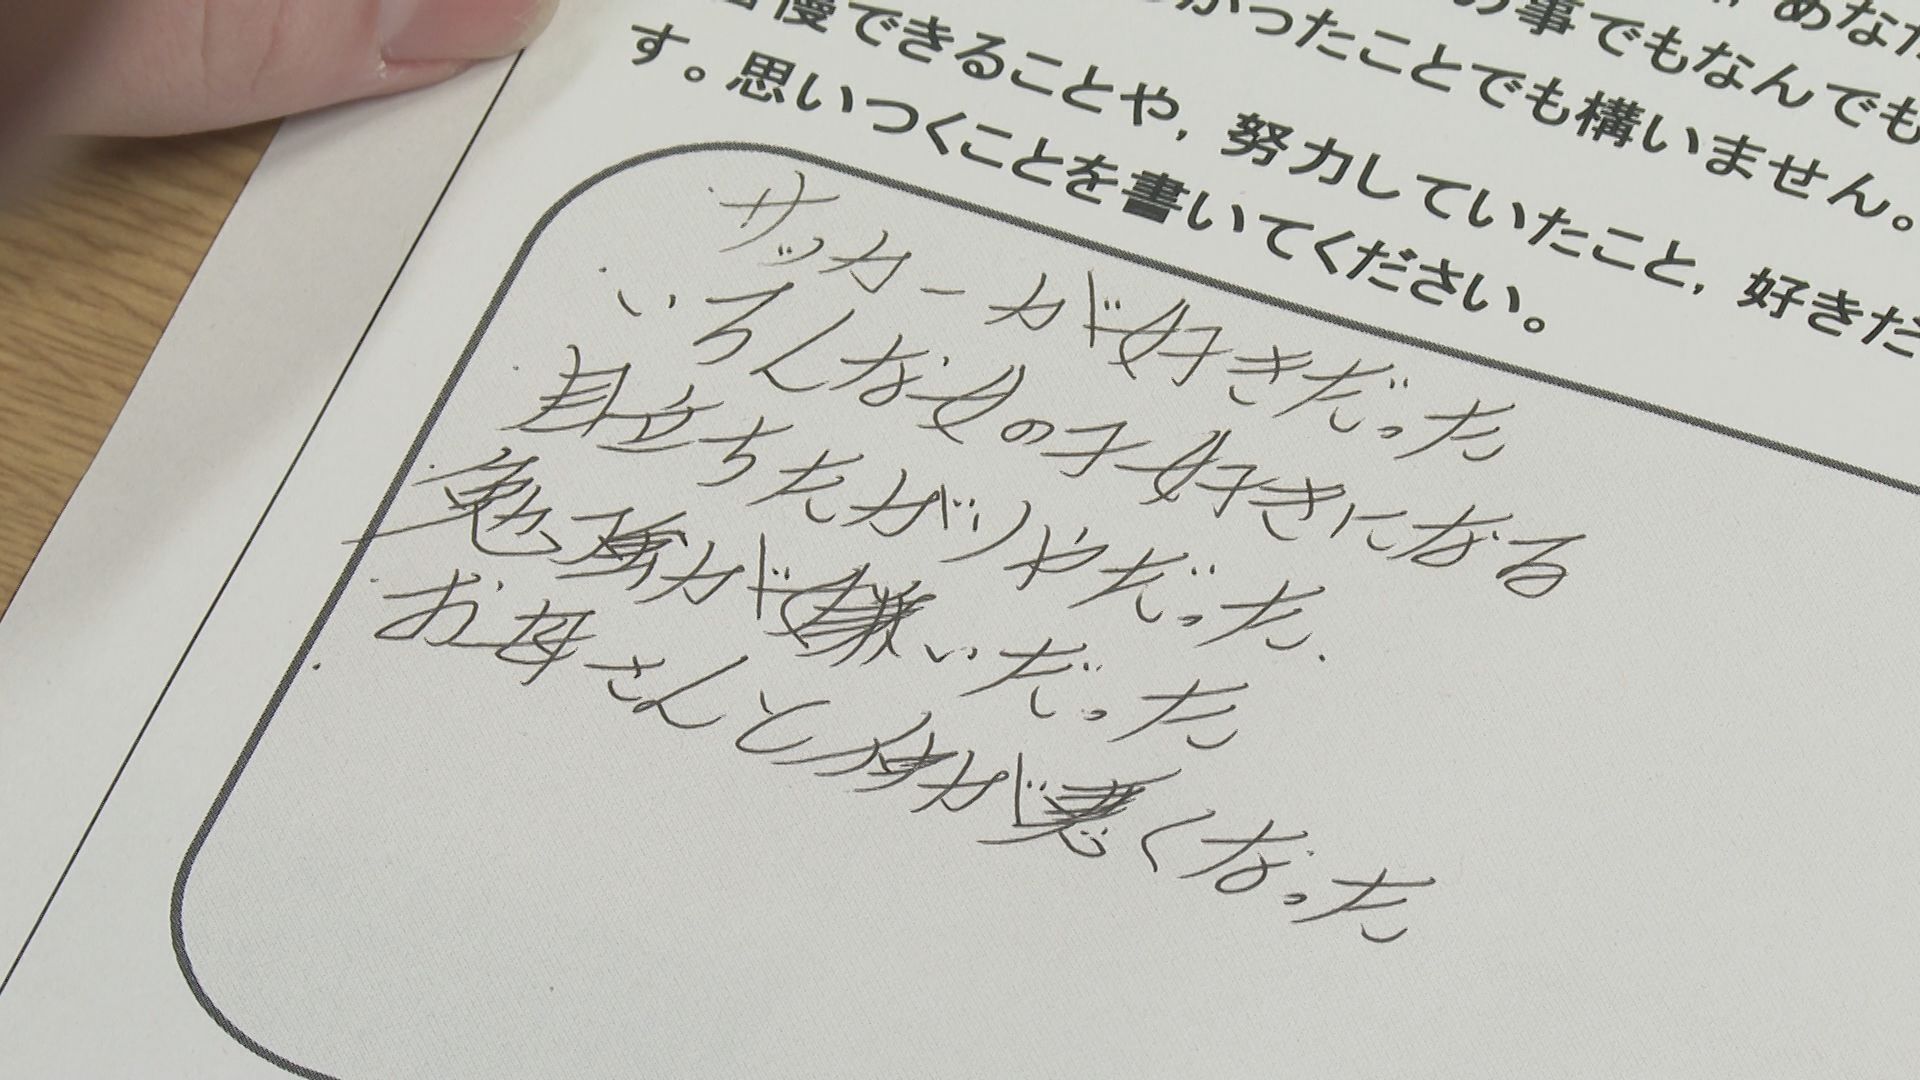 の事でもなんでも
あなた
かったことでも構いません。
慢できることや，努力していたこと，好きだ
す。思いつくことを書いてください。
・サッカーが好きだった
・いろんな女の子好きになる
・目立ちたがりやだった．
・勉強が嫌いだった
・お母さんと仲が悪くなった
・